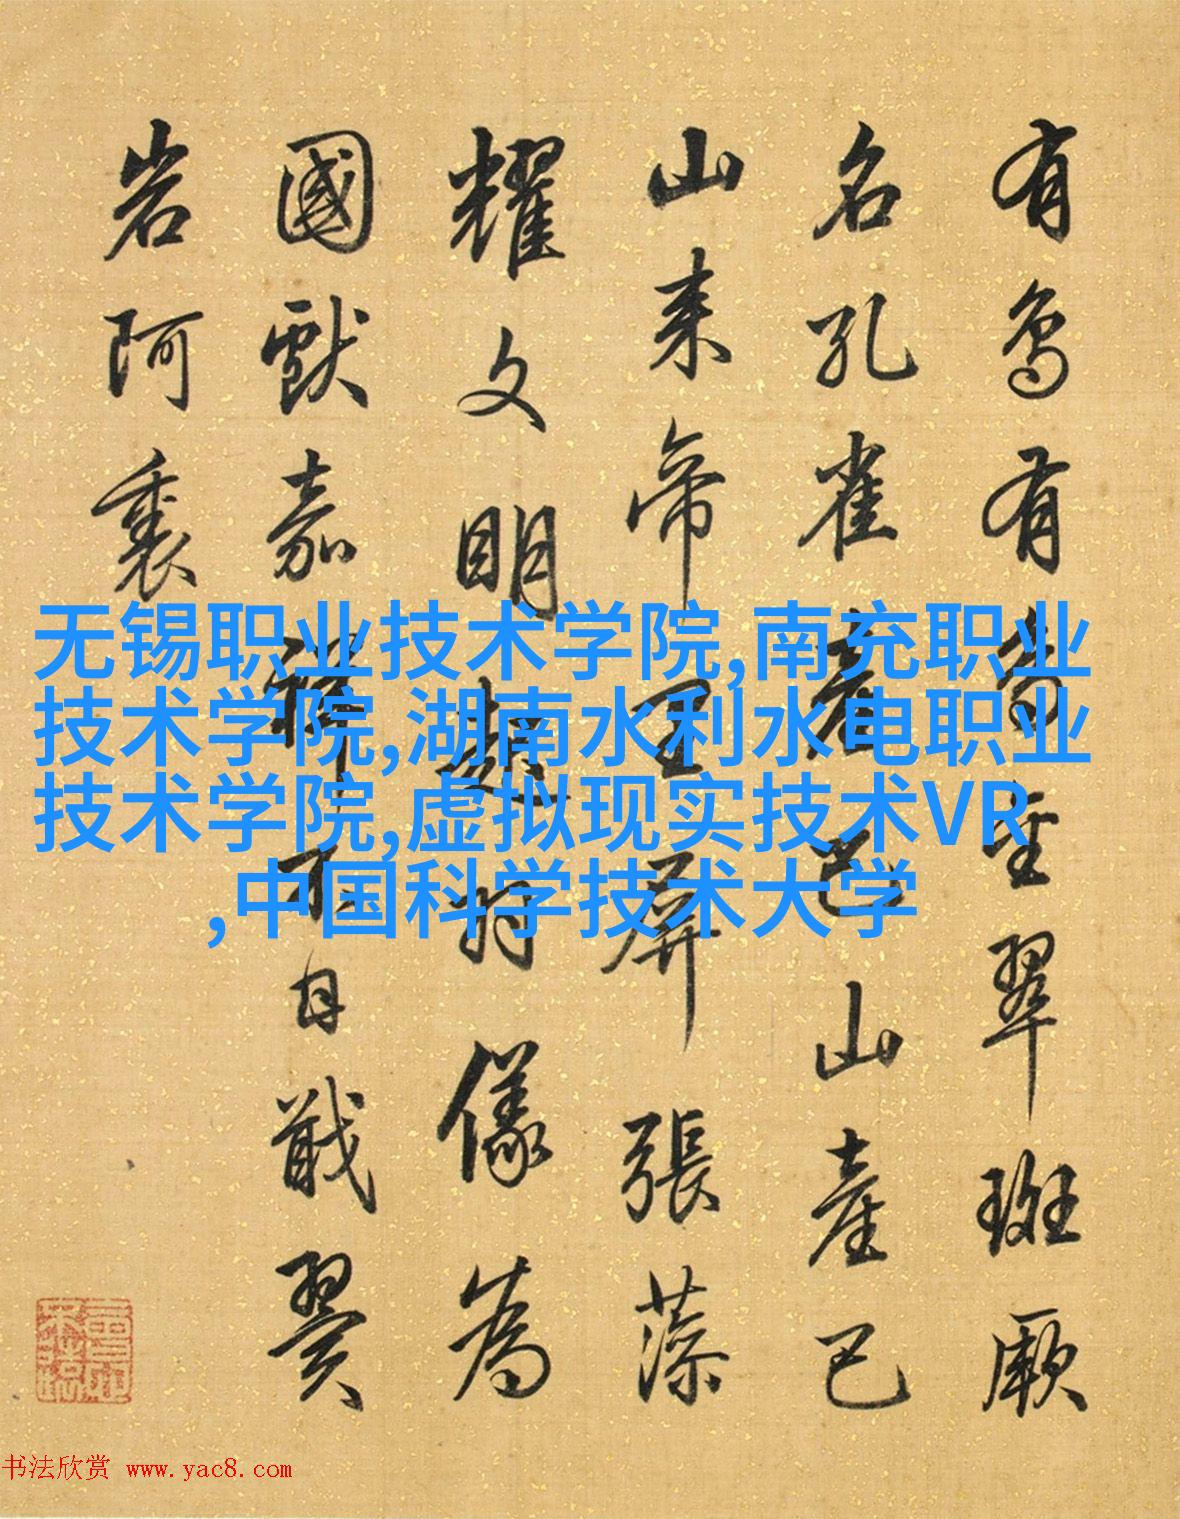 有鳥有鳥翠斑厥
名孔雀產巴山產巴
山來帝里屏張藻
耀文明儀為
國獻嘉祥戢翼
岩阿裏
无锡职业技术学院,南充职业
技术学院,湖南水利水电职业
技术学院,虚拟现实技术VR
,中国科学技术大学
书法欣赏 www.yac8.com